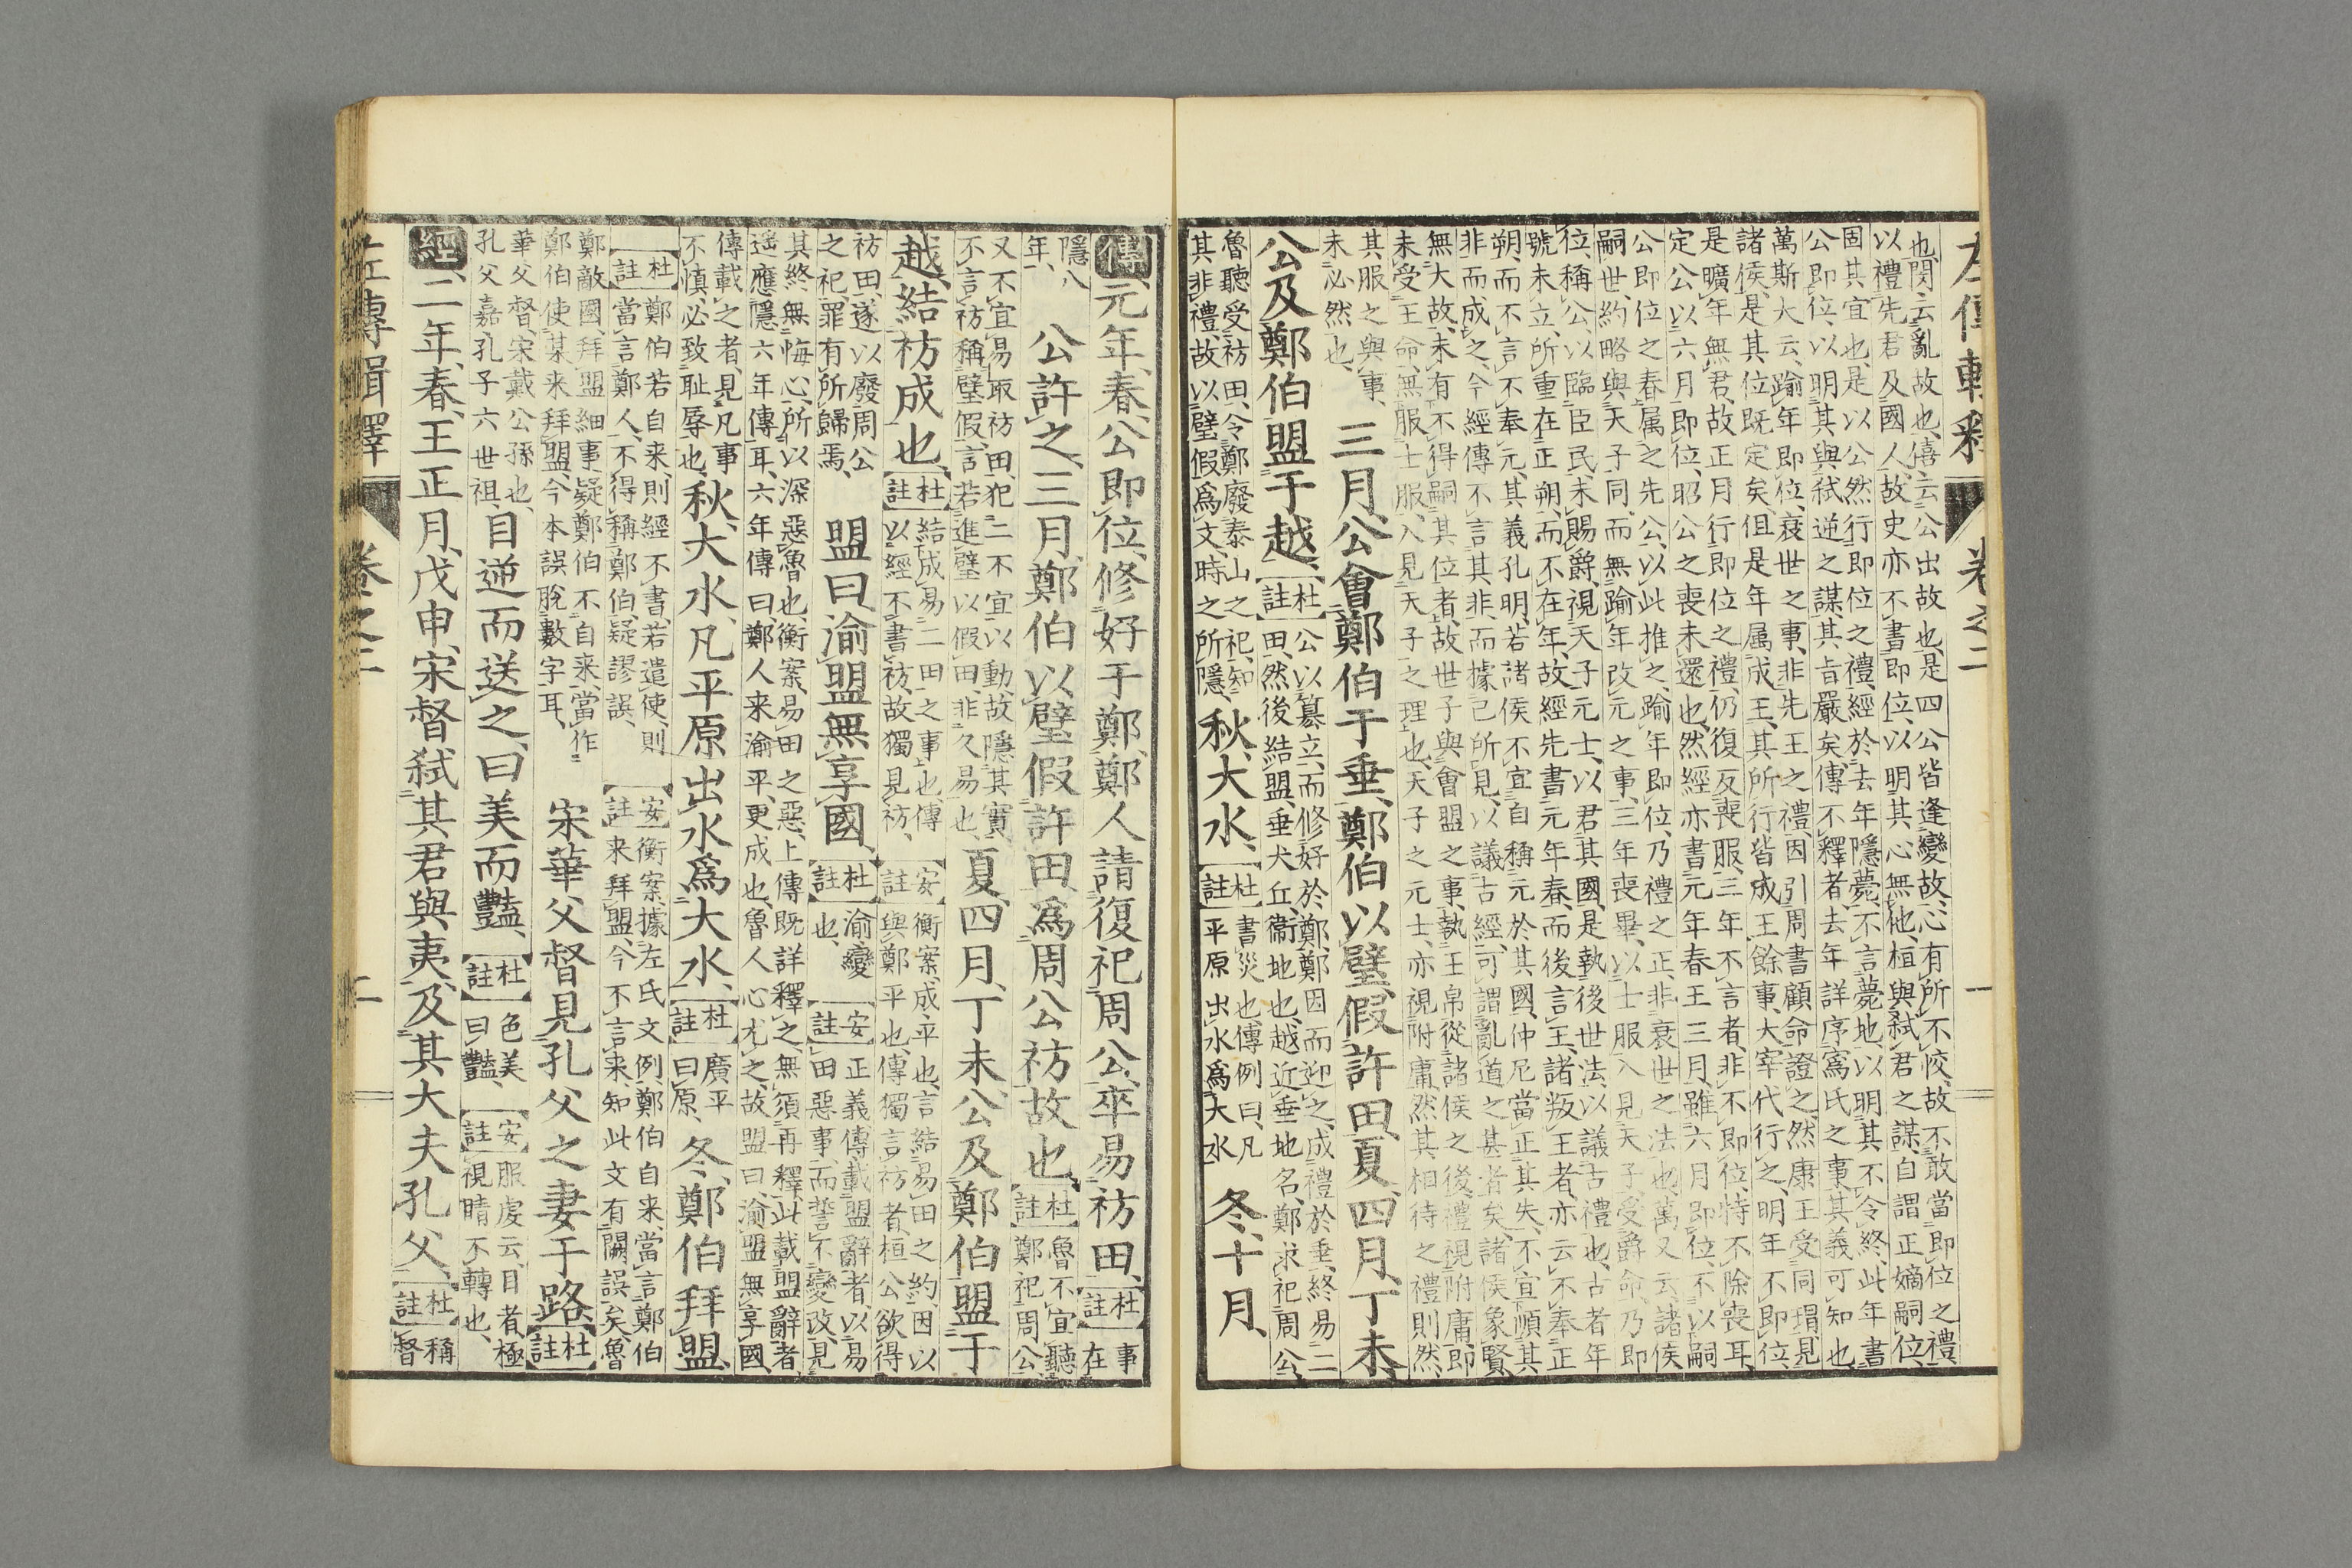 左傳輯釋 卷之二 一
也、閔云亂故也、僖云公出故也、是四公皆逢變故、心有所不佼、故不敢當即位之禮、
以禮先君及國人、故史亦不書即位、以明其心無他、桓與弒君之謀、自謂正嫡嗣位、
固其宜也、是以公然行即位之禮、經於去年隱薨、不言薨地、以明其不令終、此年書
公即位、以明其與弒逆之謀、其旨嚴矣、傳不釋者、去年詳序寪氏之事、其義可知也、
萬斯大云、踰年即位、衰世之事、非先王之禮、因引周書顧命證之、然康王受同瑁、見
諸侯、是其位既定矣、但是年属成王、其所行皆成王餘事、大宰代行之、明年不即位、
是曠年無君、故正月行即位之禮、仍復反喪服、三年不言者、非不即位、特不除喪耳、
定公以六月即位、昭公之喪未還也、然經亦書元年春王三月、雖六月即位、不以嗣
公即位之春属之先公、以此推之、踰年即位、乃禮之正、非衰世之法也、萬又云、諸侯
嗣世、約略與天子同、而無踰年改元之事、三年喪畢、以士服入見天子、受爵命、乃即
位、稱公、以臨臣民、未賜爵、視天子元士、以君其國、是執後世法、以議古禮也、古者年
號未立、所重在正朔、而不在年、故經先書元年春、而後言王、諸叛王者、亦云不奉正
朔、而不言不奉元、其義孔明、若諸侯不宜自稱元於其國、仲尼當正其失、不宜順其
非而成之、今經傳不言其非、而據己所見、以議古經、可謂亂道之甚者矣、諸侯象賢、
無大故、未有不得嗣其位者、故世子與會盟之事、執王帛從諸侯之後、禮視附庸、即
未受王命、無服士服、入見天子之理也、天子之元士、亦視附庸、然其相待之禮則然、
其服之與事、
未必然也、
三月、公會鄭伯于垂、鄭伯以璧假許田、夏四月、丁未、
公及鄭伯盟于越、
杜註
公以簒立、而修好於鄭、鄭因而迎之、成禮於垂、終易二
田、然後結盟、垂犬丘、衞地也、越近垂地名、鄭求祀周公、
魯聽受祊田、令鄭廢泰山之祀、知
其非禮、故以璧假爲文、時之所隱、
秋、大水、
杜註
書災也、傳例曰、凡
平原出水爲大水
冬、十月、
傳元年、春、公即位、修好于鄭、鄭人請復祀周公、卒易祊田、
杜註
事在
隱八
年、
公許之、三月、鄭伯以璧假許田、爲周公祊故也、
杜註
魯不宜聽
鄭祀周公、
又不宜易取祊田、犯二不宜以動、故隱其實、
不言祊稱璧假、言若進璧以假田、非久易也、
夏四月、丁未、公及鄭伯盟于
越、結祊成也、
杜註
結成易二田之事也、傳
以經不書祊、故獨見祊、
安註
衡案、成平也、言結易田之約、因以
與鄭平也、傳獨言祊者、桓公欲得
祊田、遂以廢周公
之祀、罪有所歸焉、
盟曰、渝盟無享國、
杜註
渝變
也、
安註
正義、傳載盟辭者、以易
田惡事、而誓不變改、見
其終無悔心、所以深惡魯也、衡案、易田之惡、上傳既詳釋之、無須再釋、此載盟辭者、
遥應隱六年傳耳、六年傳曰、鄭人来渝平、更成也、魯人心尤之、故盟曰、渝盟無享國、
傳載之者、見凡事
不慎、必致耻辱也、
秋、大水、凡平原出水爲大水、
杜註
廣平
曰原、
冬、鄭伯拜盟、
杜註
鄭伯若自来、則經不書、若遣使、則
當言鄭人、不得稱鄭伯、疑謬誤、
安註
衡案、據左氏文例、鄭伯自来、當言鄭伯
来拜盟、今不言来、知此文有闕誤矣、魯
鄭敵國、拜盟細事、疑鄭伯不自来、當作
鄭伯使某来拜盟、今本誤脫數字耳、
宋華父督見孔父之妻于路、
杜註
華父督、宋戴公孫也、
孔父嘉、孔子六世祖、
目逆而送之、曰、美而豔、
杜註
色美
曰豔、
安註
服虔云、目者極
視睛不轉也、
經、二年、春、王正月、戊申、宋督弒其君與夷、及其大夫孔父、
杜註
稱
督
左傳輯釋 卷之二 二